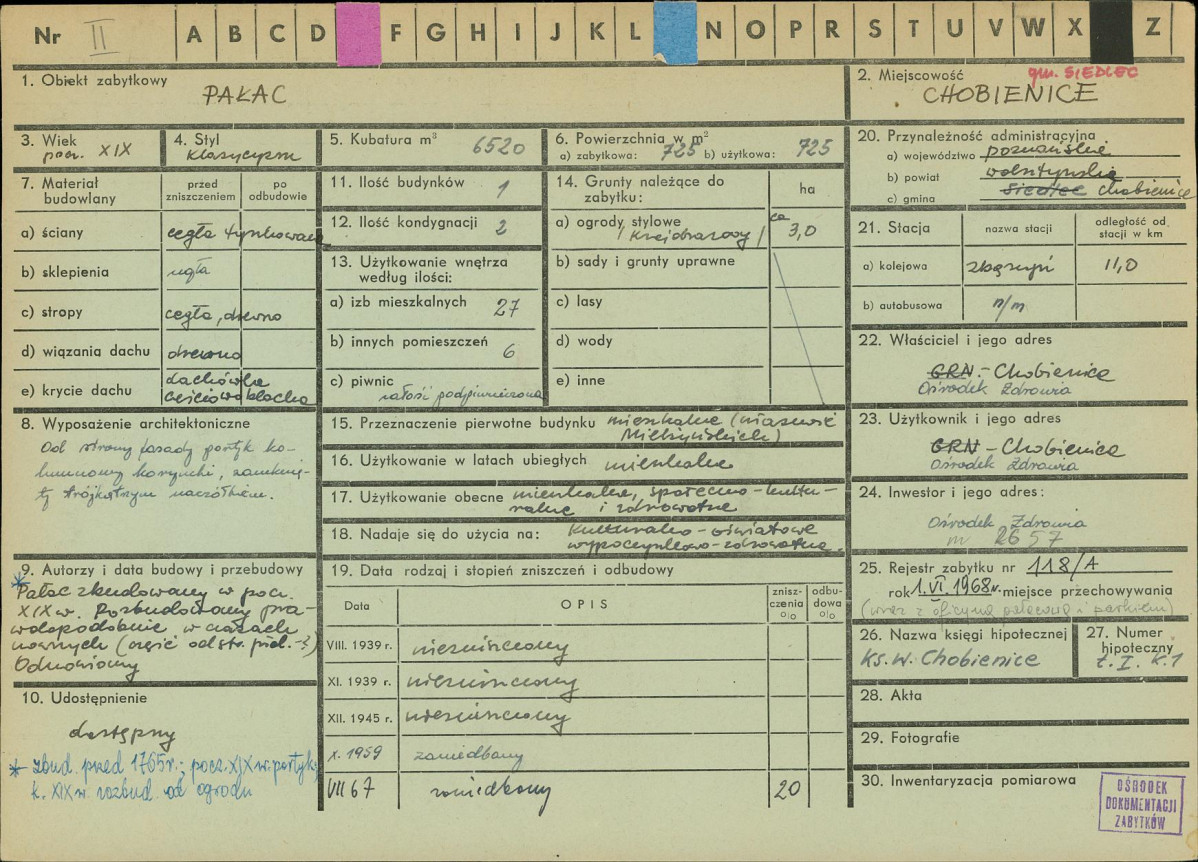 Nr II A B C D F G H I J K L N O P R S T U V W X Z
1. Obiekt zabytkowy
PAŁAC
2. Miejscowość
gm. SIEDLEC
CHOBIENICE
3. Wiek
pocz. XIX
4. Styl
klasycyzm
5. Kubatura m³ 6520
6. Powierzchnia w m²
a) zabytkowa: 725 b) użytkowa: 725
20. Przynależność administracyjna
a) województwo poznańskie
b) powiat wolsztyński
c) gmina Siedlec Chobienice
7. Materiał budowlany
przed zniszczeniem
po odbudowie
a) ściany cegła tynkowana
b) sklepienia cegła
c) stropy cegła, drewno
d) wiązania dachu drewno
e) krycie dachu dachówka
częściowo blacha
11. Ilość budynków 1
12. Ilość kondygnacji 2
13. Użytkowanie wnętrza
według ilości:
a) izb mieszkalnych 27
b) innych pomieszczeń 6
c) piwnic
całość podpiwniczona
14. Grunty należące do
zabytku:
ha
a) ogrody stylowe ca 3,0
/ krajobrazowy /
b) sady i grunty uprawne
c) lasy
d) wody
e) inne
21. Stacja
nazwa stacji
odległość od
stacji w km
a) kolejowa Zbąszyń 11,0
b) autobusowa n/m
22. Właściciel i jego adres
GRN - Chobienice
Ośrodek Zdrowia
8. Wyposażenie architektoniczne
Od strony fasady portyk ko-
lumnowy koryncki, zamknię-
ty trójkątnym naczółkiem.
15. Przeznaczenie pierwotne budynku mieszkalne (własność
Mielżyńskich)
16. Użytkowanie w latach ubiegłych mieszkalne
17. Użytkowanie obecne mieszkalne, społeczno-kultu-
ralne i zdrowotne
18. Nadaje się do użycia na: Kulturalno-oświatowe
wypoczynkowo-zdrowotne.
23. Użytkownik i jego adres
GRN - Chobienice
Ośrodek Zdrowia
24. Inwestor i jego adres:
Ośrodek Zdrowia
m 2657
9. Autorzy i data budowy i przebudowy
* Pałac zbudowany w pocz.
XIX w. Rozbudowany pra-
wdopodobnie w czasach
nowszych (część od str. płd.-)
Odnowiony
19. Data rodzaj i stopień zniszczeń i odbudowy
Data
OPIS
znisz-
czenia
%
odbu-
dowa
%
VIII. 1939 r. niezniszczony
XI. 1939 r. niezniszczony
XII. 1945 r. niezniszczony
X. 1959 zaniedbany
VII 67 zaniedbany 20
25. Rejestr zabytku nr 118/A
rok 1.VI.1968 r. miejsce przechowywania
(wraz z oficyną pałacową i parkiem)
26. Nazwa księgi hipotecznej
Ks. w. Chobienice
27. Numer
hipoteczny
t. I. K. 1
10. Udostępnienie
dostępny
* zbud. przed 1765 r.; pocz. XIX w. portyk;
k. XIX w. rozbud. od ogrodu
28. Akta
29. Fotografie
30. Inwentaryzacja pomiarowa
OŚRODEK
DOKUMENTACJI
ZABYTKÓW